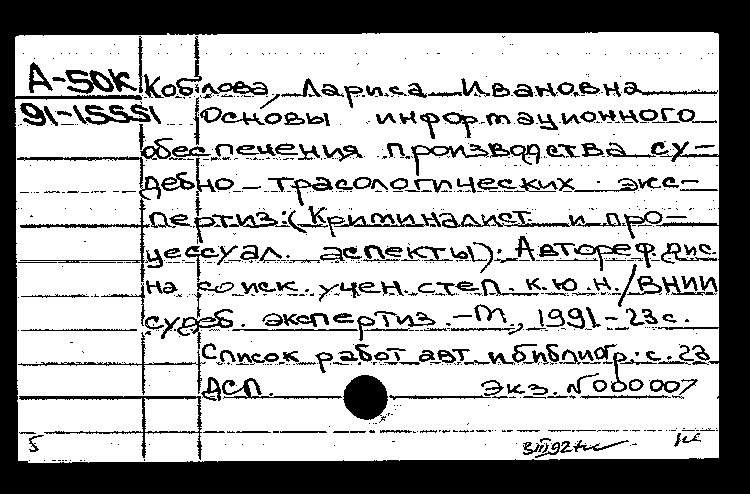 А-50К Кобилова, Лариса Ивановна
91-15551 Основы информационного
обеспечения производства су-
дебно-трасологических экс-
пертиз: (Криминалист. и про-
цессуал. аспекты): Автореф. дис.
на соиск. учен. степ. к. ю. н. / ВНИИ
судеб. экспертиз. - М., 1991 - 23 с.
Список работ авт. и библиогр.: с. 23
ДСП. Экз. N 000007
5 3/III 92